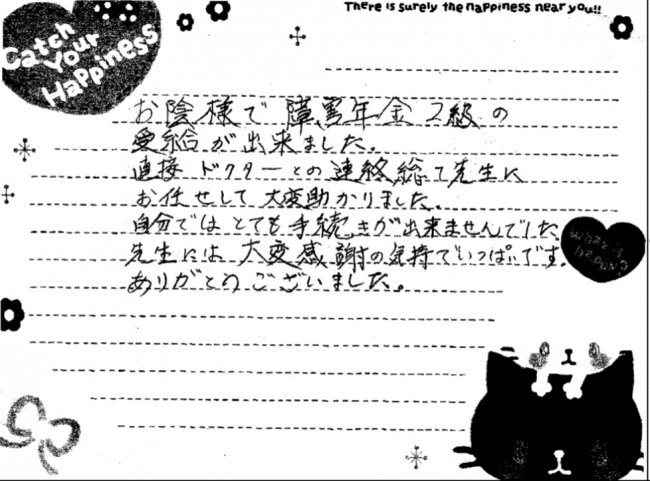 There is surely the happiness near you!!
Catch
Your
Happiness
お陰様で障害年金2級の
受給が出来ました。
直接ドクターとの連絡総て先生に
お任せして大変助かりました。
自分ではとても手続きが出来ませんでした
先生には大変感謝の気持でいっぱいです。
ありがとうございました。